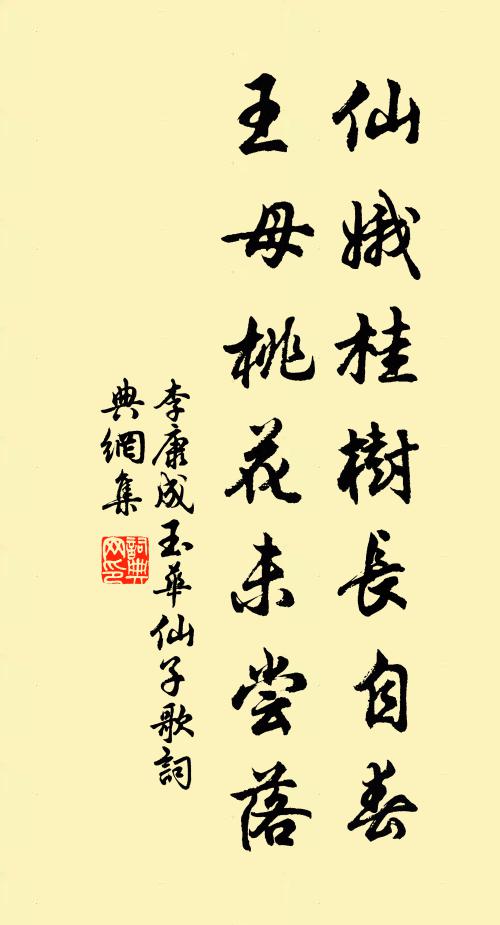 仙娥桂樹長自春
王母桃花未尝落
李康成玉華仙子歌詞
典網集
詞典
网印